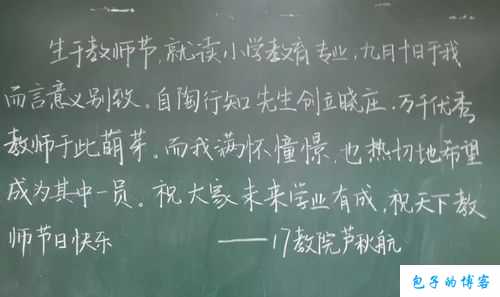 生于教师节,就读小学教育专业,九月十日于我
而言意义别致。自陶行知先生创立晓庄,万千优秀
教师于此萌芽。而我满怀憧憬,也热切地希望
成为其中一员。祝大家未来学业有成,祝天下教
师节日快乐
——17教院芦秋航
包子的博客